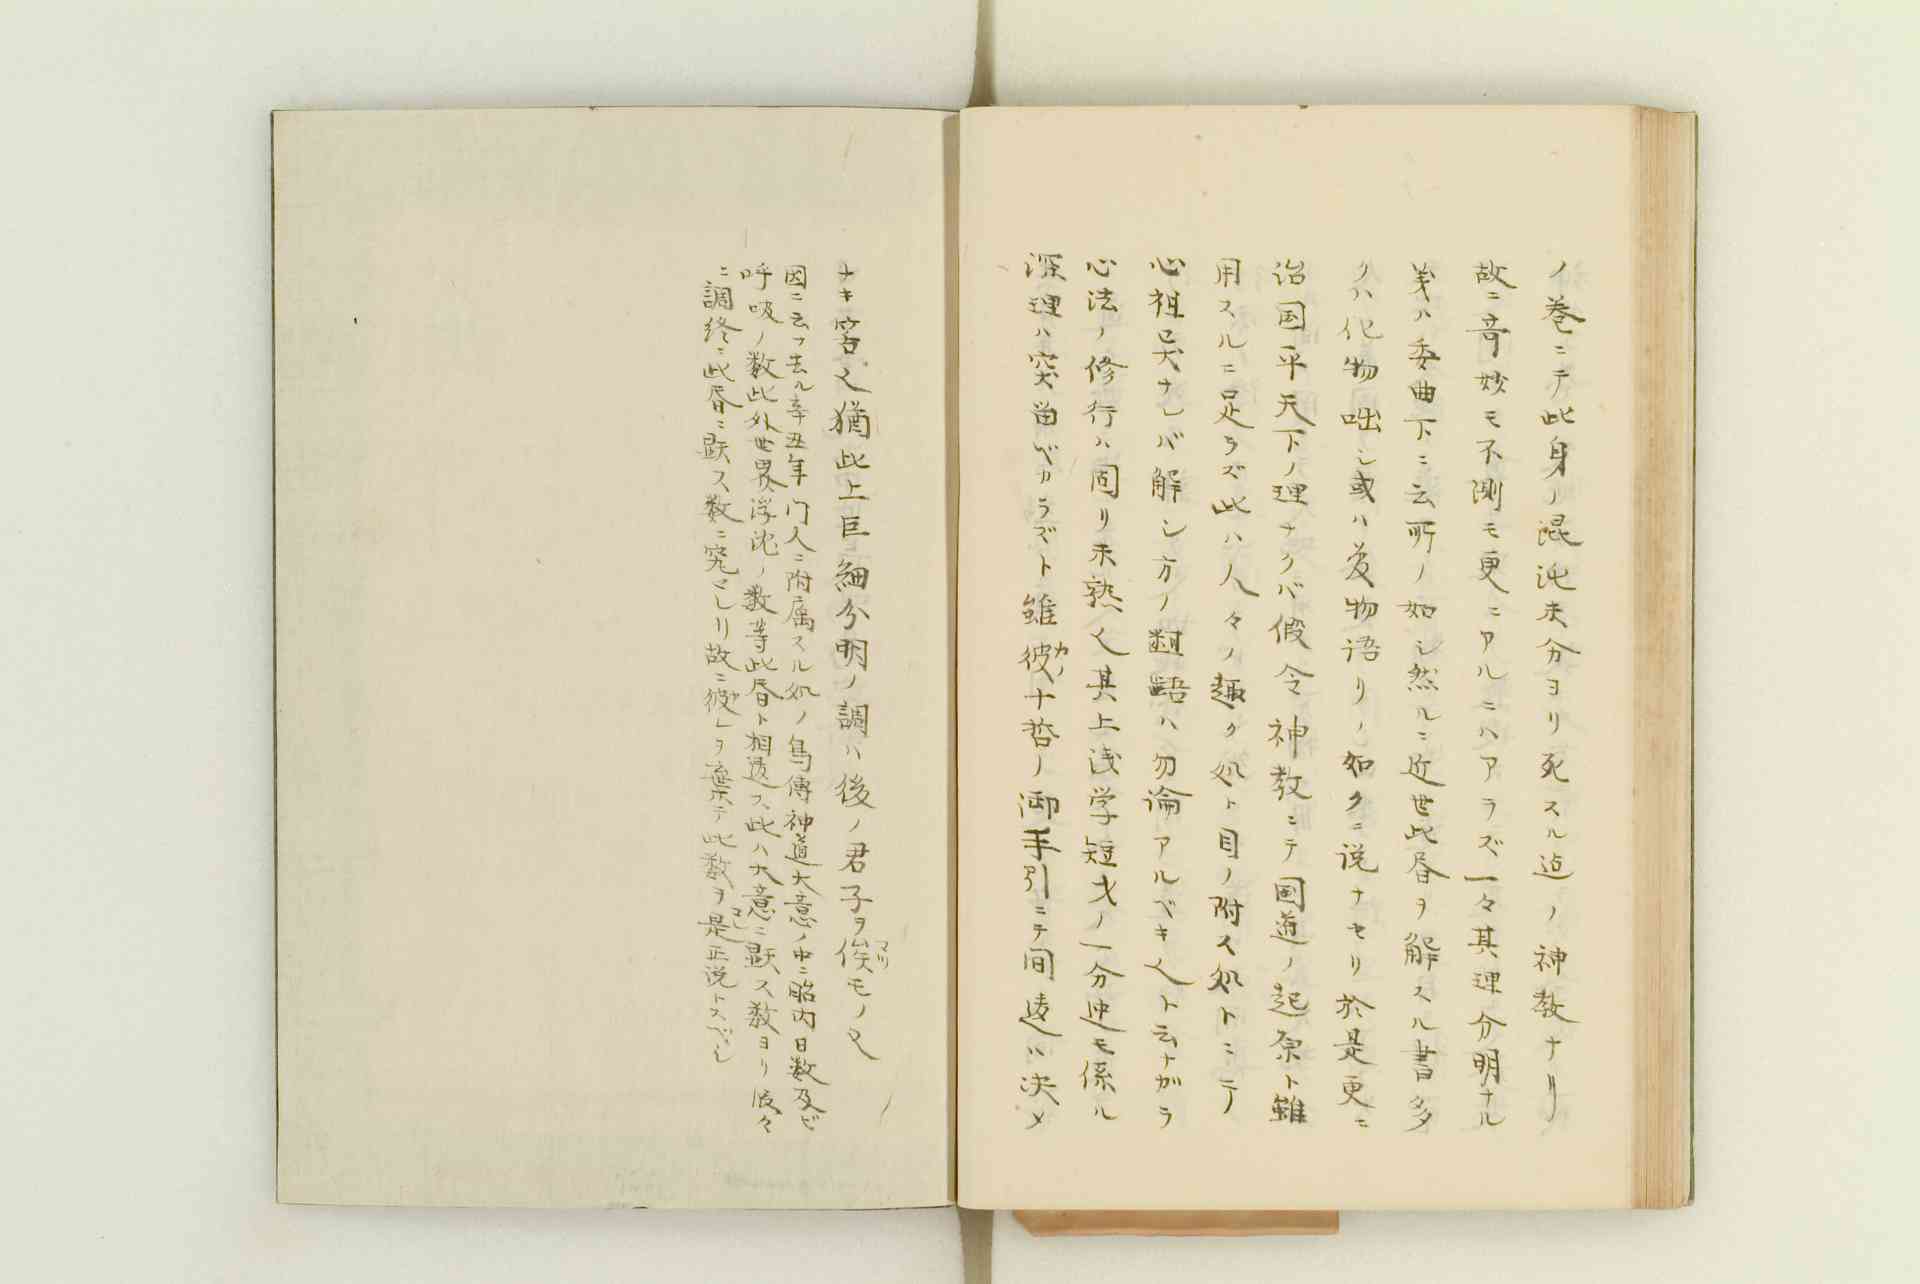 ノ巻ニテ此身ノ混沌未分ヨリ死スル迠ノ神教ナリ
故ニ竒妙モ不測モ更ニアルニハアラズ一々其理分明ナル
義ハ委曲下ニ云所ノ如シ然ルニ近世此㫪ヲ解スル書多
クハ化物咄シ或ハ夢物語リノ如クニ説ナセリ於是更ニ
治国平天下ノ理ナクバ假令神教ニテ国道ノ起原ト雖
用スルニ足ラズ此ハ人々ノ趣ク処ト目ノ附ス処トニテ
心祖昊ナレバ解シ方ノ齟齬ハ勿論アルベキ㐧ト云ナガラ
心法ノ修行ハ固リ未熟㐧其上浅学短才ノ一分迚モ係ル
深理ハ突留ベカラズト雖彼カノ十哲ノ御手引ニテ間違ハ決メ
ナキ筈㐧猶此上巨細分明ノ調ハ後ノ君子ヲ俟マツモノ㐧
因ニ云フ去ル辛丑年門人ニ附属スル処ノ烏傳神道大意ノ中ニ昭内日数及ビ
呼吸ノ数此外世界浮沈ノ数等此㫪ト相違ス此ハ大意ニ顕ス数ヨリ段々
ニ調終ニ此㫪ニ顕ス数ニ究マレリ故ニ彼レヲ棄テ此数ヲ是コレ正説トスベシ